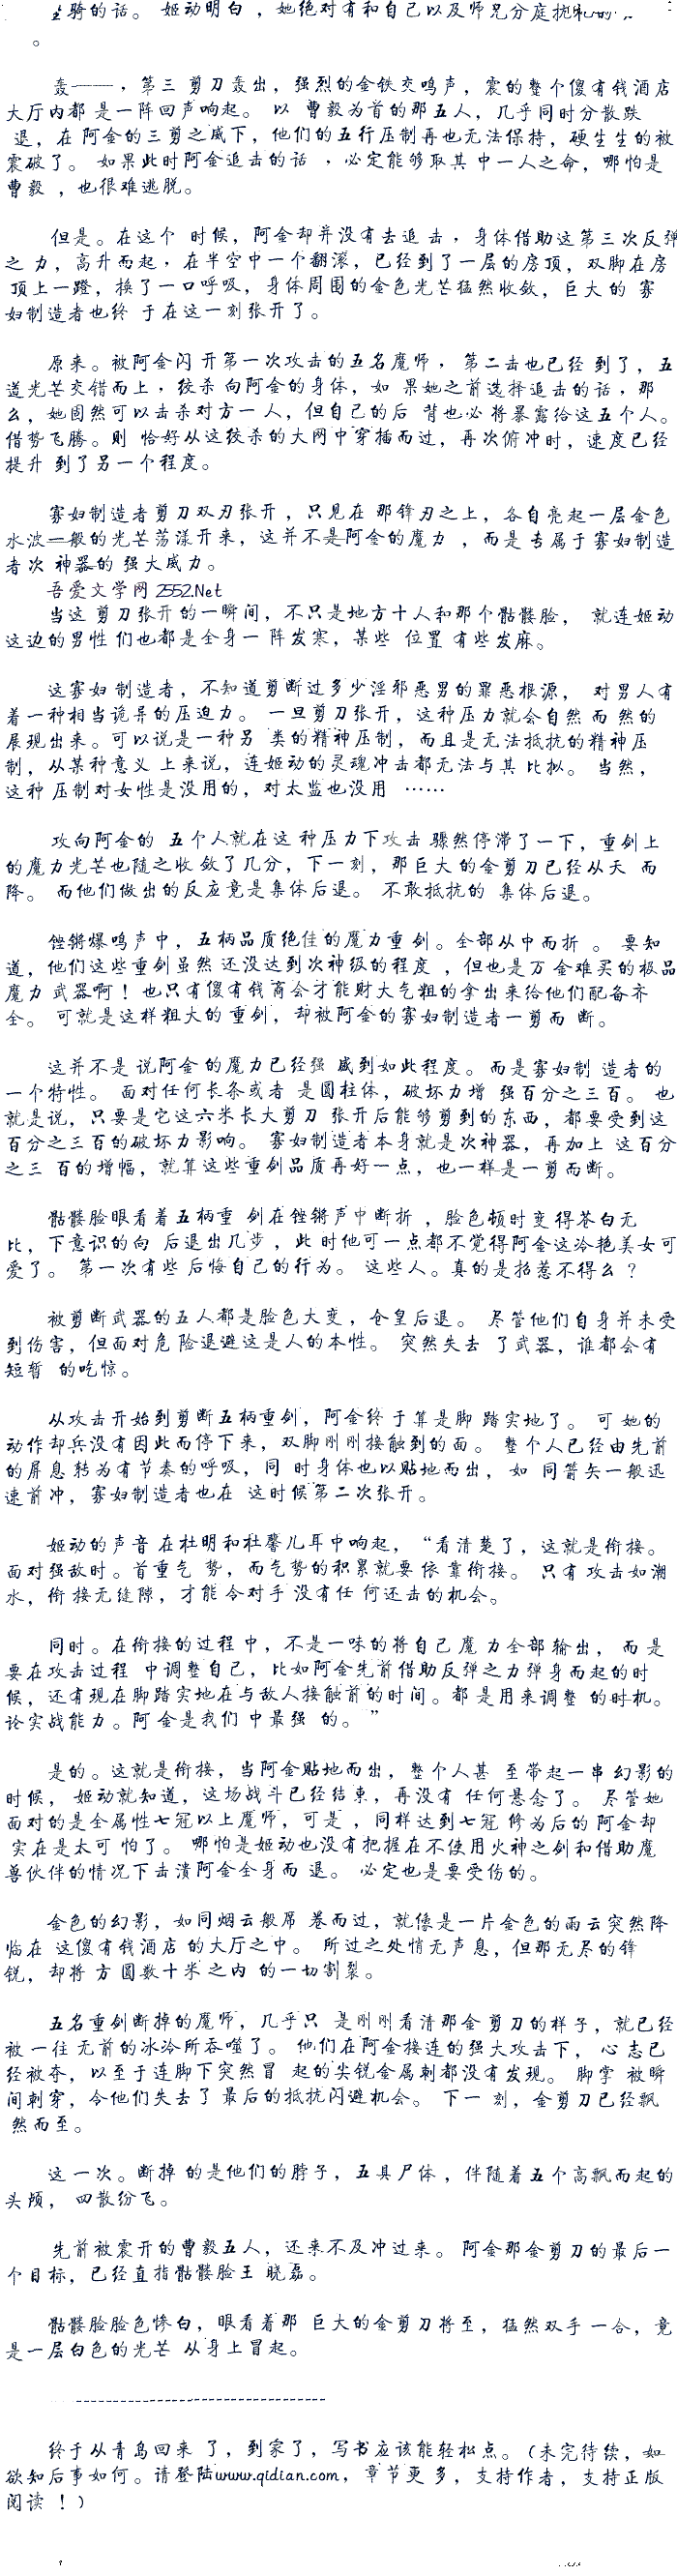 坐骑的话。 姬动明白 ，她绝对有和自己以及师兄分庭抗礼的
。
轰——，第三 剪刀轰出，强烈的金铁交鸣声，震的整个傻有钱酒店
大厅内都 是一阵回声响起。 以 曹毅为首的那五人，几乎同时分散跌
退，在 阿金的三剪之威下，他们的五行压制再也无法保持，硬生生的被
震破了。 如果此时阿金追击的话 ，必定能够取其 中一人之命，哪怕是
曹毅 ，也很难逃脱。
但是。在这个 时候，阿金却并没有去追 击，身体借助这第三次反弹
之 力，高升而起，在半空中一个翻滚，已经到了一层的房顶，双脚在房
顶上一蹬，换了一口呼吸，身体周围的金色光芒猛然收敛，巨大的 寡
妇制造者也终 于在这一刻张开了。
原来。被阿金闪 开第一次攻击的五名魔师，第二击也已经 到了，五
道光芒交错而上，绞杀 向阿金的身体，如 果她之前选择追击的话，那
么，她固然可以击杀对方一 人，但自己的后 背也必 将暴露给这五个人。
借势飞腾。则 恰好从这绞杀的大网中穿插而过，再次俯冲时，速度已经
提升 到了另一个程度。
寡妇制造者剪刀双刃张开，只见在 那锋刃之上，各自亮起一层金色
水波一般的光芒荡漾开来，这并不是阿金的魔力 ，而是 专属于寡妇制造
者次 神器的 强大威力。
吾爱文学网 2552.Net
当这 剪刀张开的一瞬间，不只是地方十人和那个骷髅脸， 就连姬动
这边的男性 们也都是全身一 阵发寒，某些 位置 有些发麻。
这寡妇 制造者，不知道剪断过多少淫邪恶男的罪恶根源， 对男人有
着一种相当诡异的压迫力。 一旦剪刀张开，这种压力就会自然 而 然的
展现出来。可以说是一种另 类的精神压制，而且是无法抵抗的精神压
制，从某种意义 上来说，连姬动的灵魂冲击都无法与其 比拟。 当然，
这种 压制对女性是没用的，对太监也没用 ……
攻向阿金的 五个人就在这 种压力下攻击 骤然停滞了一下，重剑上
的魔力光芒也随之收 敛了几分，下一刻，那巨大的金剪刀已经从天 而
降。 而他们做出的反应竟是集体后退。 不敢抵抗的 集体后退。
铿锵爆鸣声中，五柄品质绝佳的魔力重剑。全部从中而折 。 要知
道，他们这些重剑虽然 还没达到次神级的程度 ，但也是万 金难买的极品
魔力 武器啊！也只有傻有钱商会才能财大气粗的拿出来给他们配备齐
全。 可就是这样粗大的 重剑，却被阿金的寡妇制造者一剪而 断。
这并不是 说阿金 的魔力已经强 盛到如此程度。而是寡妇制 造者的
一个特性。 面对任何长条或者 是圆柱体，破坏力增 强百分之三百。 也
就是说，只要是它这六米长大剪刀 张开后能够剪到的东西，都要受到这
百分之三百的破坏力影响。 寡妇制造者本身就是次神器，再加上 这百分
之三 百的增幅，就算这些重剑品质再好一点，也一样是一剪而断。
骷髅脸眼看着五柄重 剑在铿锵声中断折 ，脸色顿时变得苍白无
比，下意识的向 后退出几步 ，此 时他可一点都不觉得阿金这冷艳美女可
爱了。 第一次有些 后悔自己的行为。 这些人。真的是招惹不得么 ？
被剪断武器的五人都是脸色大变，仓皇后退。 尽管他们自身并未受
到伤害，但面对危 险退避这是人的本性。 突然失去 了武器，谁都会有
短暂 的吃惊。
从攻击开始到剪断五柄重剑，阿金终于算是脚 踏实地了。 可 她的
动作却兵没有因此而停下来，双脚刚刚接触到的面。 整个人已经由先前
的屏息 转为有节奏的呼吸，同 时身体也以贴地而出， 如 同箭矢一般迅
速前冲，寡妇制造者也在 这时候第二次张开。
姬动的声音 在杜明和杜馨儿耳中响起，“看清楚了，这就是衔接。
面对强敌时。首重气 势，而气势的积累就要 依 靠衔接。 只有 攻击如潮
水，衔 接无缝隙，才能 令对手 没有任 何还击的机会。
同时。在衔接的过程 中，不是一味的将自己 魔 力全部 输出， 而 是
要在攻击过程 中调整自己，比如阿金先前借助反弹之力弹身而起的时
候，还有现在脚踏实地在与敌人接触前的时间。都 是用来调整 的时机。
论实战能力。阿 金是我们 中最强 的。”
是的。这就是衔接，当阿金贴地而出，整个人甚 至带起一串 幻影的
时候， 姬动就知道，这场战斗已经 结束，再没有 任何悬念了。 尽管她
面对的是全属性七冠以上魔师，可是 ，同样达到七冠 修为后的 阿金却
实在是太可 怕了。 哪怕是姬动也没有把握在不使用火神之剑和借助魔
兽伙伴的情况下击溃阿金全身而 退。 必定也是要受伤的。
金色的幻影，如同烟云般席 卷而过，就像是一片金色的雨云突然降
临在 这傻有钱酒店 的大厅之中。 所过之处悄无声息，但那无尽的锋
锐，却将 方 圆数十米 之内 的一切割裂。
五名重剑断掉的魔师，几乎只 是刚刚看清那金 剪刀的样子，就已经
被 一往 无前的冰冷所吞噬了。 他们在阿金接连的强大攻击下， 心 志已
经被夺，以至于连脚下突然冒 起的尖锐金属刺都没有发现。 脚掌 被瞬
间刺穿，令他们失去了 最后的抵抗闪避机会。 下一 刻，金剪刀已经飘
然而至。
这 一次。断掉 的是他们的脖子，五具尸体 ，伴随着五个高飘而起的
头颅， 四散纷飞。
先前被震开的曹毅五人，还来不及冲过来。 阿金那金剪刀的最后一
个目标，已经直指骷髅脸王 晓磊。
骷髅脸脸色惨白，眼看着那 巨大的金剪刀将至，猛然双手一合，竟
是一层白色的光芒 从身上冒起。
----------------------------------
终于从青岛回来 了，到家了，写书应该能轻松点。（未完待续，如
欲知后事如何。请登陆www.qidian.com，章节更 多，支持作者，支持正版
阅读 ！）